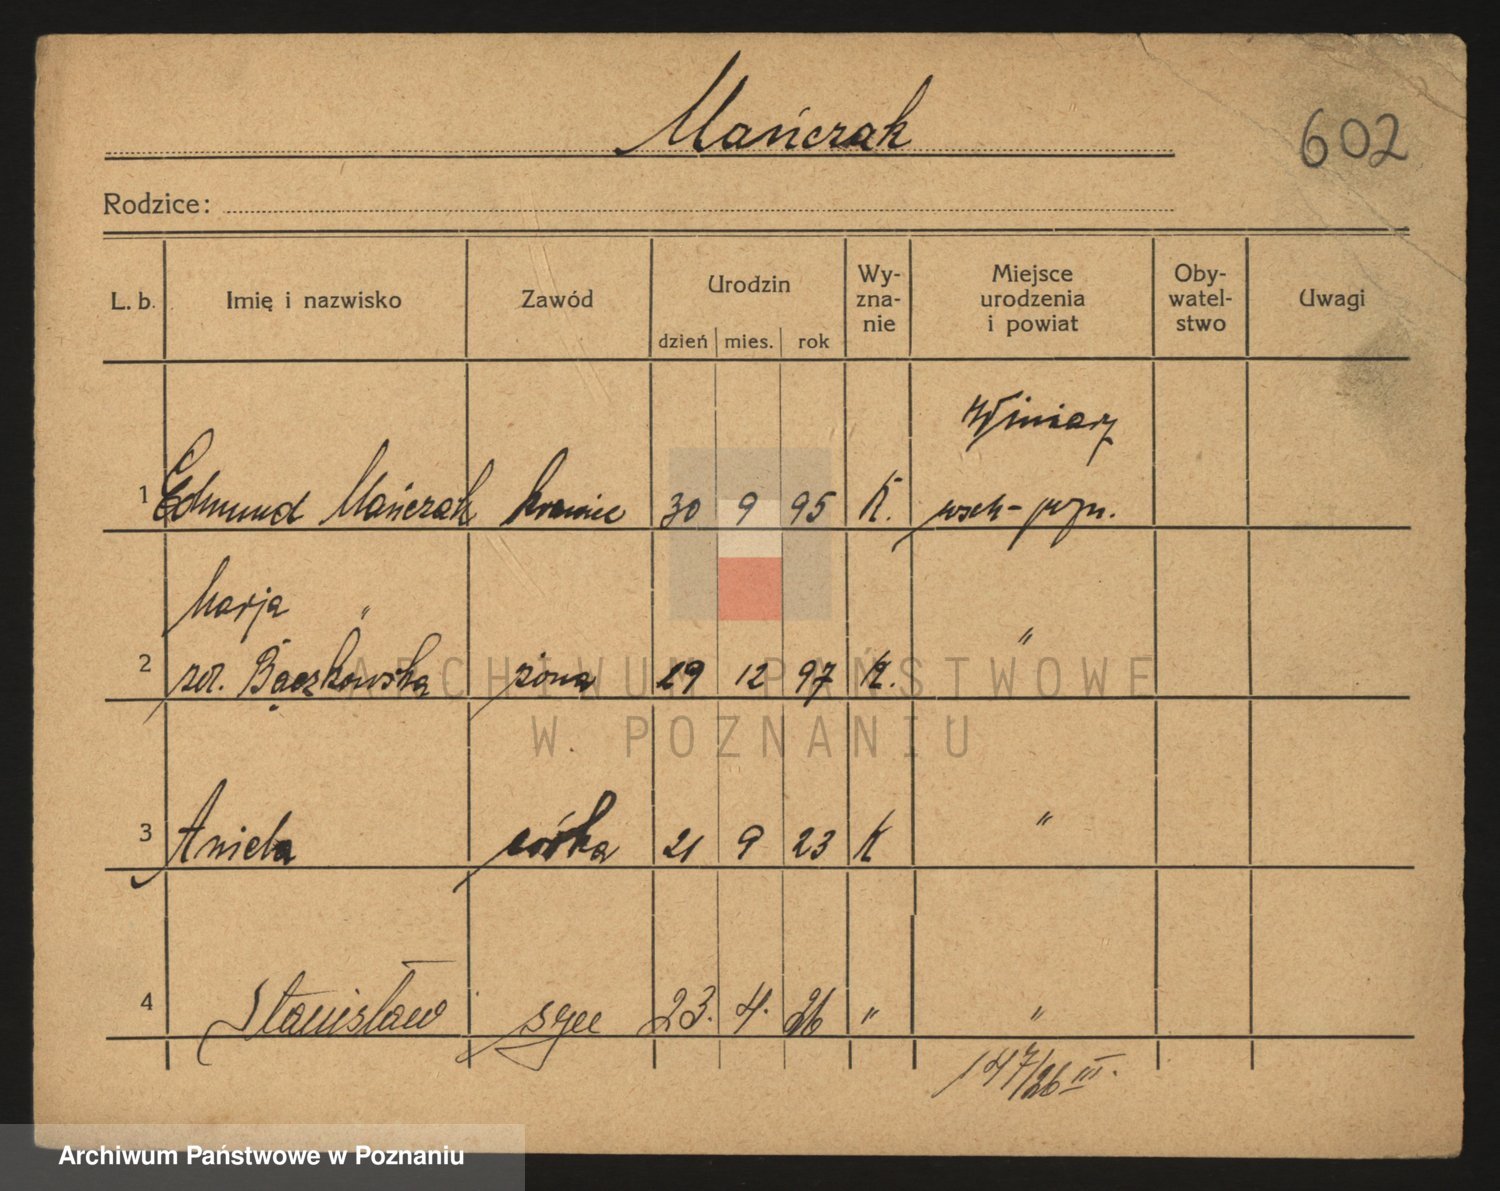 Mańczak
602
Rodzice:
L. b. Imię i nazwisko Zawód Urodzin Wy-zna-nie Miejsce urodzenia i powiat Oby-watel-stwo Uwagi
dzień mies. rok
Winiary
1 Edmund Mańczak krawiec 30 9 95 K. wsch-pozn.
Marja "
2 zd. Bączkowska żona 29 12 97 K. "
3 Aniela córka 21 9 23 K "
4 Stanisław syn 23. 4. 26 " "
147/26 III.
ARCHIWUM PAŃSTWOWE
W POZNANIU
Archiwum Państwowe w Poznaniu